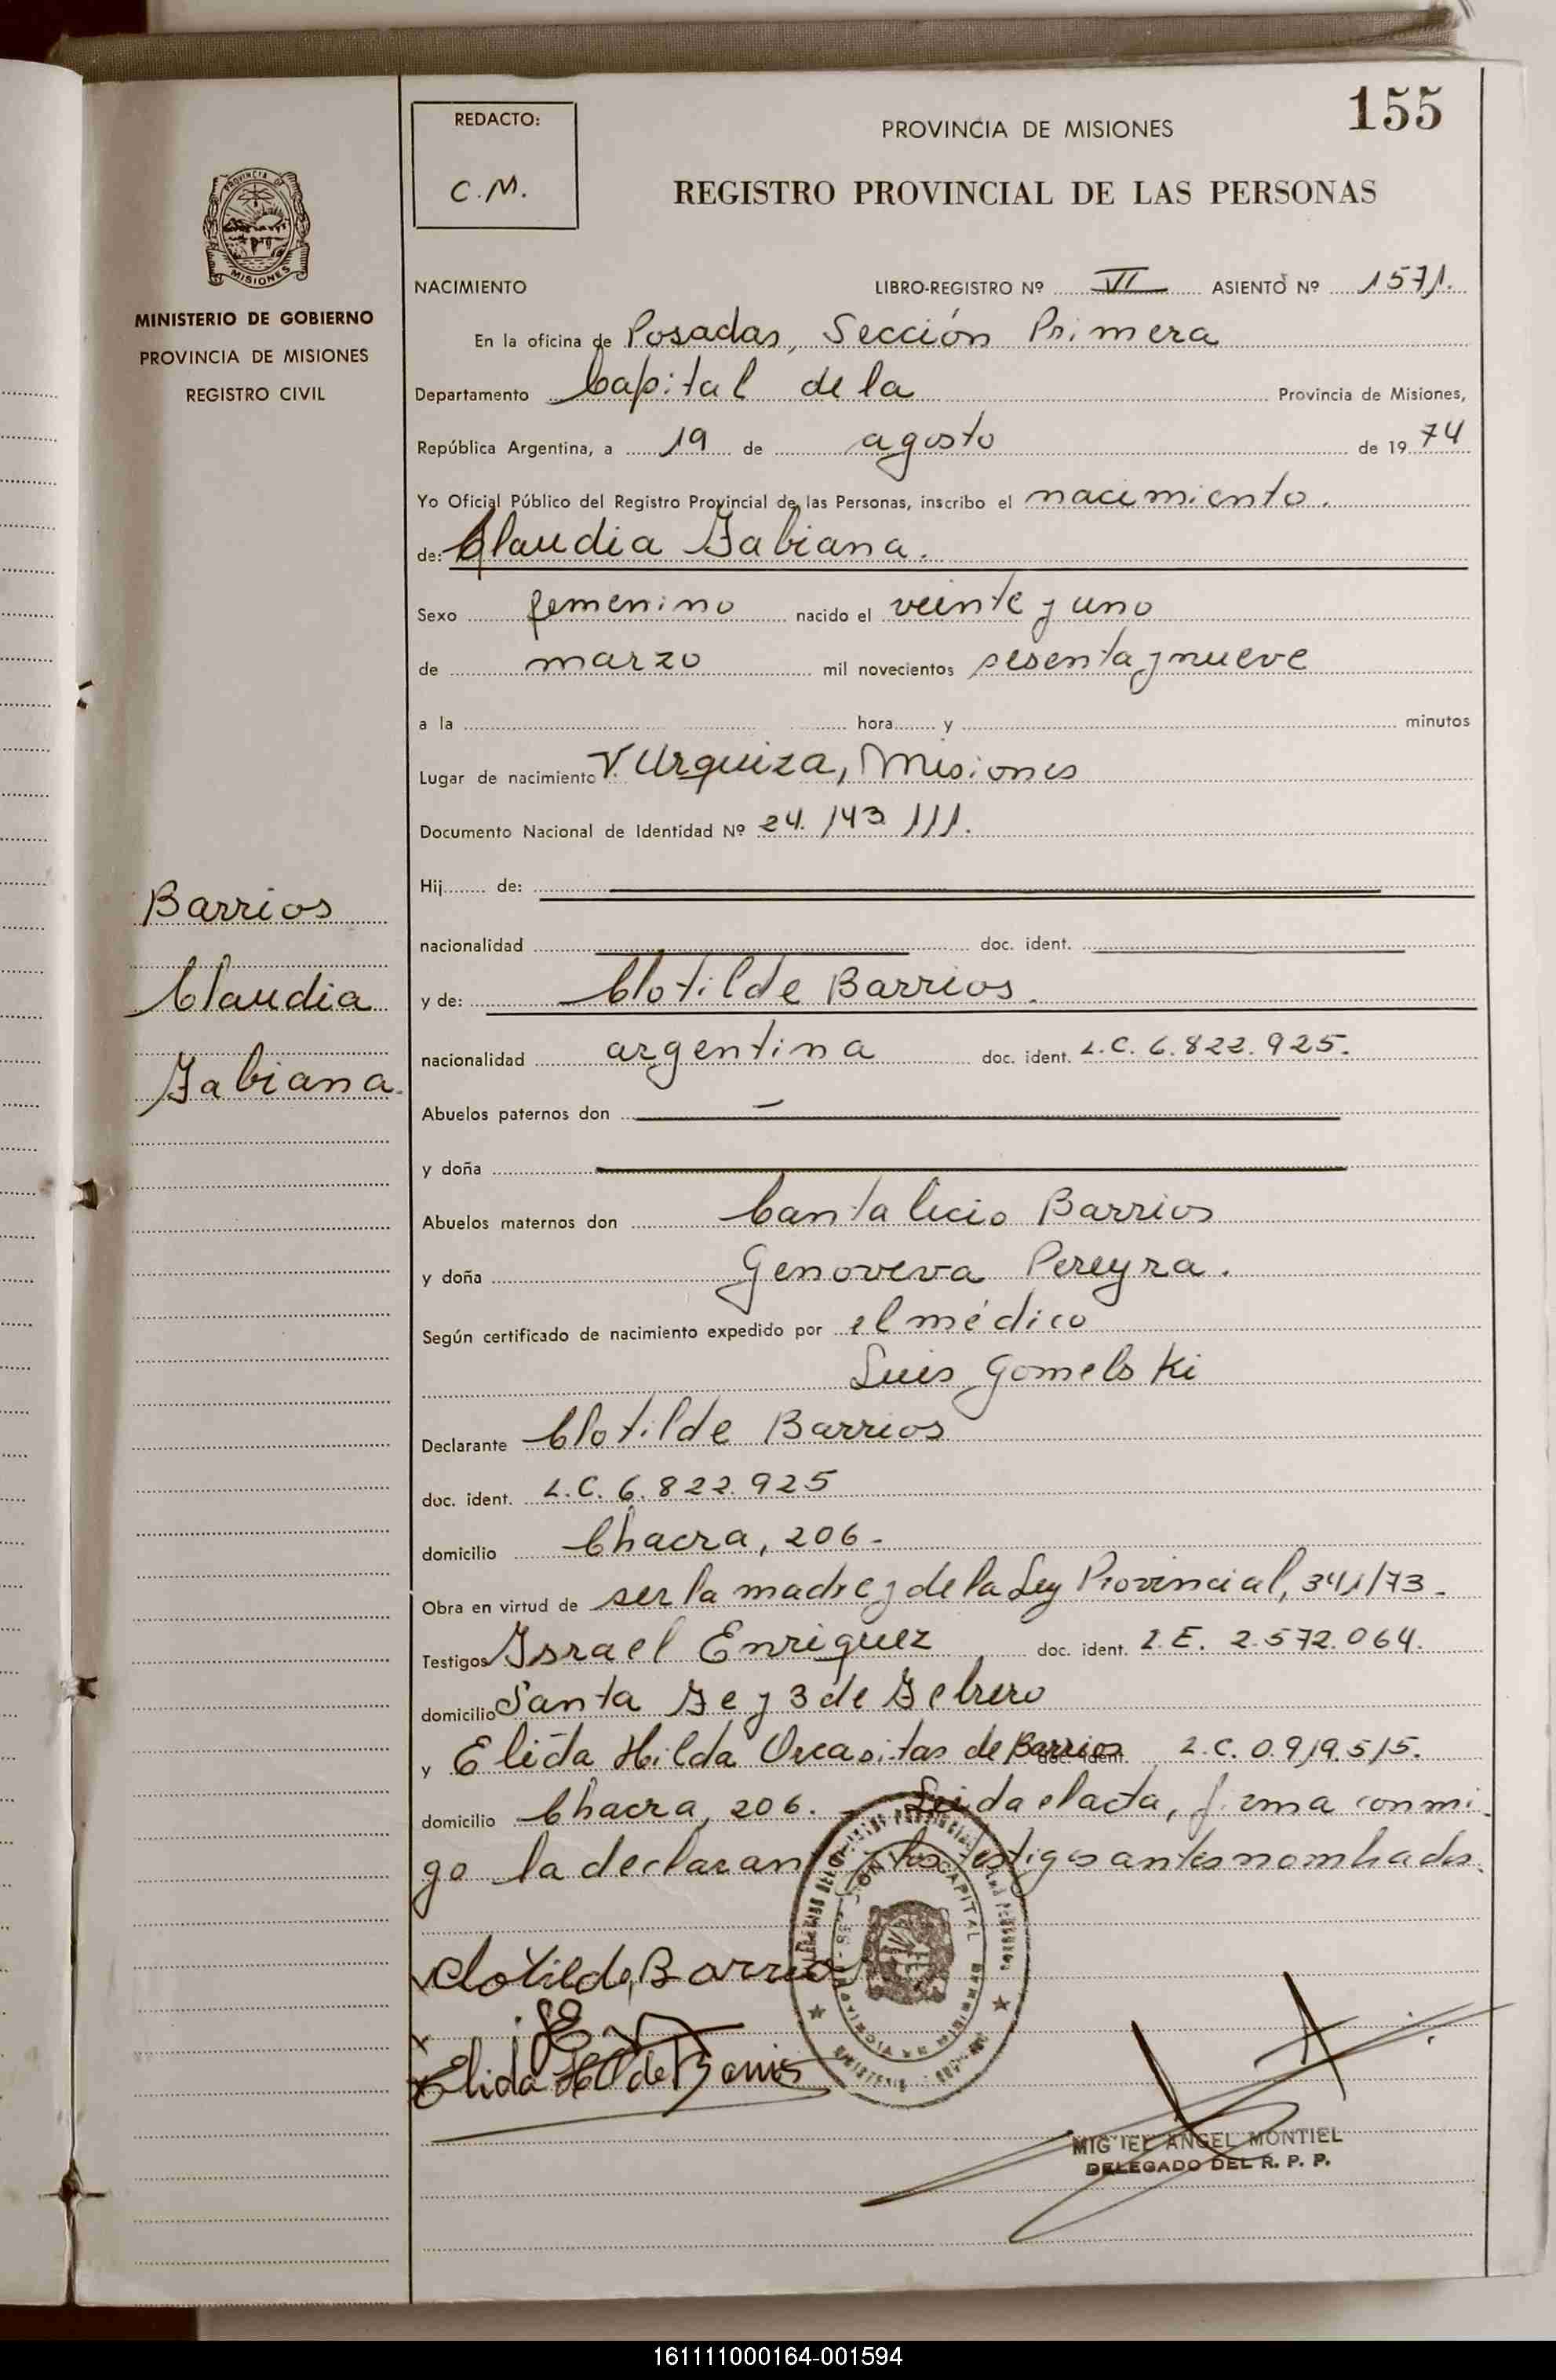 155
REDACTO:
C.M.
PROVINCIA DE MISIONES
REGISTRO PROVINCIAL DE LAS PERSONAS
PROVINCIA DE
MISIONES
MINISTERIO DE GOBIERNO
PROVINCIA DE MISIONES
REGISTRO CIVIL
NACIMIENTO LIBRO-REGISTRO Nº VI ASIENTO Nº 1571.
En la oficina de Posadas, Sección Primera
Departamento Capital de la Provincia de Misiones,
República Argentina, a 19 de agosto de 1974
Yo Oficial Público del Registro Provincial de las Personas, inscribo el nacimiento.
de: Claudia Fabiana.
Sexo femenino nacido el veinte y uno
de marzo mil novecientos sesenta y nueve
a la hora y minutos
Lugar de nacimiento V. Urquiza, Misiones
Documento Nacional de Identidad Nº 24.143 111.
Hij de:
nacionalidad doc. ident.
y de: Clotilde Barrios.
nacionalidad argentina doc. ident. L.C. 6.822.925.
Abuelos paternos don
y doña
Abuelos maternos don Cantalicio Barrios
y doña Genoveva Pereyra.
Según certificado de nacimiento expedido por el médico
Luis Gomelski
Declarante Clotilde Barrios
doc. ident. L.C. 6.822.925
domicilio Chacra, 206.
Obra en virtud de ser la madre y de la Ley Provincial, 341/73.
Testigos Israel Enriquez doc. ident. L.E. 2.572.064.
domicilio Santa Fe y 3 de Febrero
y Elida Hilda Orcasitas de Barrios doc. ident. L.C. 0.919.515.
domicilio Chacra, 206. - Leida el acta, firma conmi
go la declarante y los testigos antes nombrados.
Barrios
Claudia
Fabiana.
Clotilde Barrios
Elida H O de Barrios
CAPITAL
MIGUEL ANGEL MONTIEL
DELEGADO DEL R. P. P.
161111000164-001594